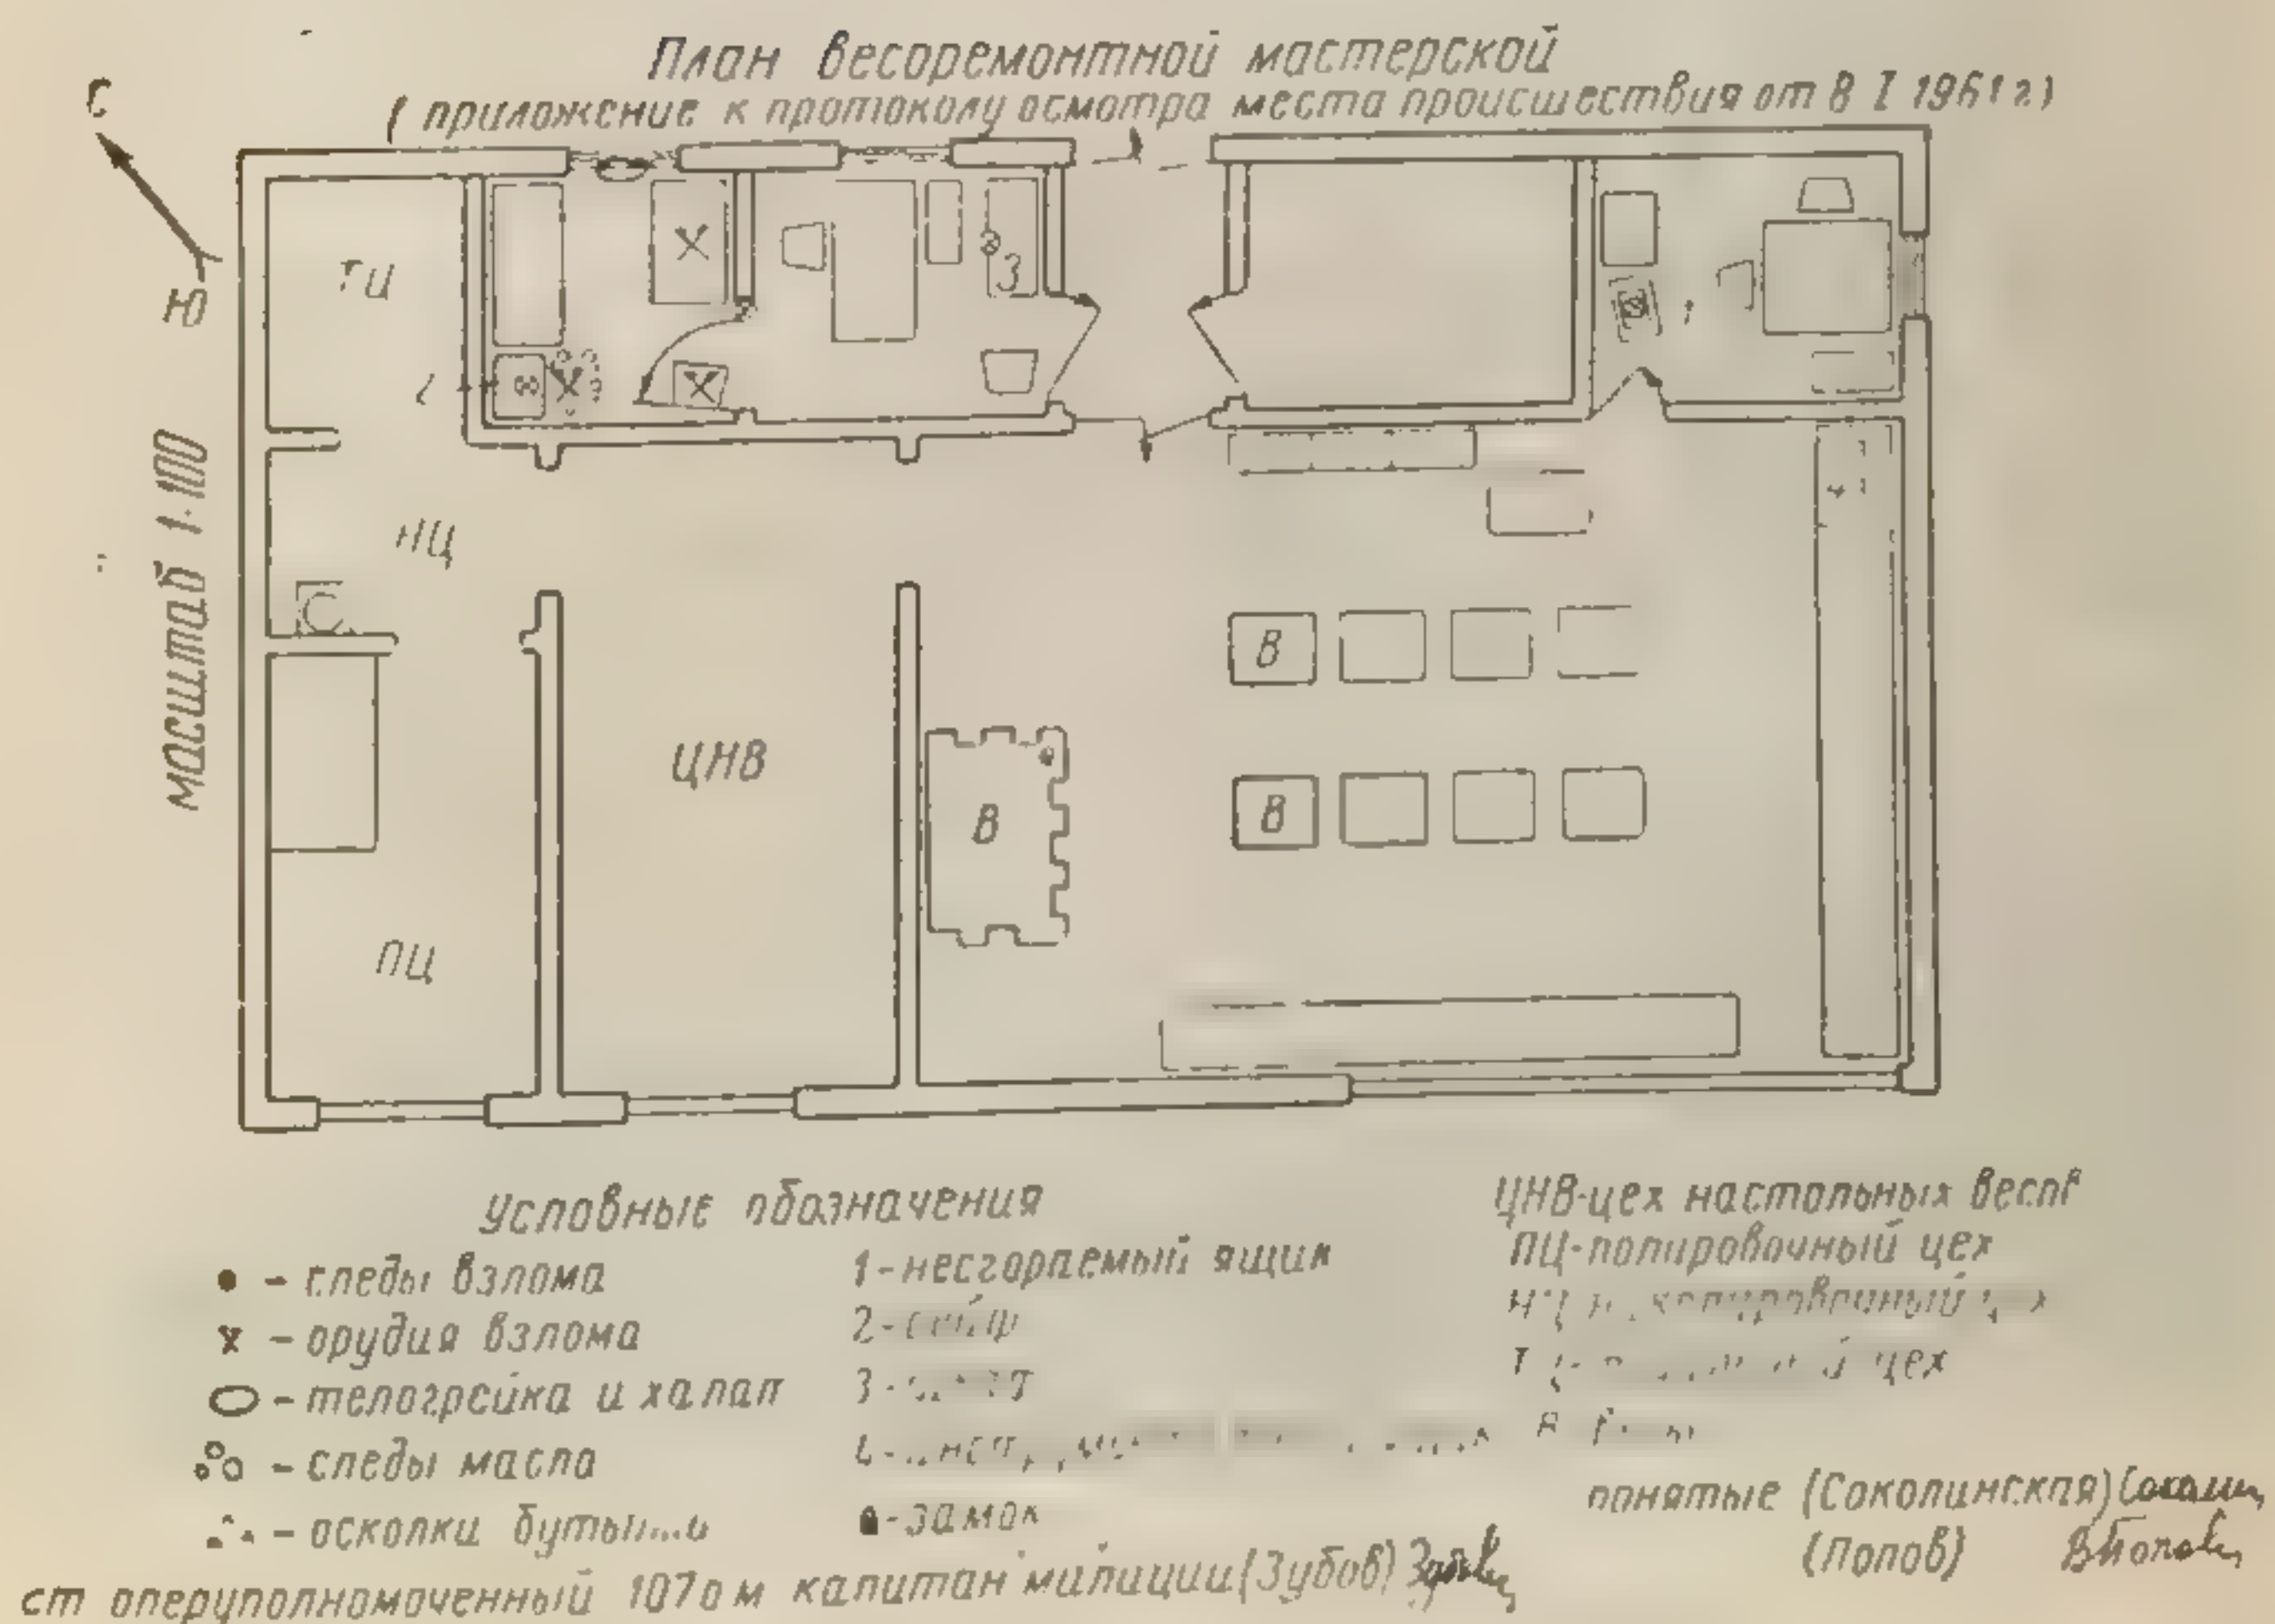 План весоремонтной мастерской
( приложение к протоколу осмотра места происшествия от 8 I 1961 г)
С
Ю
масштаб 1:100
ТЦ
3
1
2
НЦ
ЦНВ
В
В
В
ПЦ
Условные обозначения
- следы взлома
х - орудия взлома
- телогрейка и халат
- следы масла
- осколки
1 - несгораемый ящик
2 -
3 -
- замок
ЦНВ-цех настольных весов
ПЦ-полировочный цех
цех
В
понятые (Соколинская)
(Попов) ВПопов
ст оперуполномоченный 107 о м капитан милиции (Зубов)